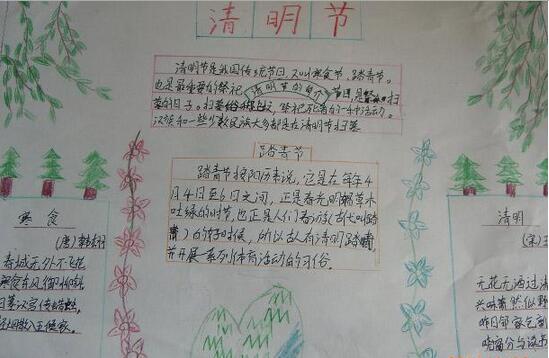 清明节
清明节是我国传统节日,又叫寒食节、踏青节。
也是最重要的祭祀
节日,是
扫
墓的日子。扫墓俗称上坟,祭祀死者的一种活动。
汉族和一些少数民族大多都是在清明节扫墓
踏青节
踏青节按阳历来说,它是在每年4
月4日至6日之间,正是春光明媚草木
吐绿的时节,也正是人们春游(古代叫踏
青)的好时候,所以古人有清明踏
并开展一系列体育活动的习俗。
寒食
(唐)韩翃
春城无处不飞花
寒食东风御柳斜
日暮汉宫传蜡烛
轻烟散入五侯家
清明
(宋)王
无花无酒过清
兴味萧然似野
昨日邻家乞新
晓窗分与读书